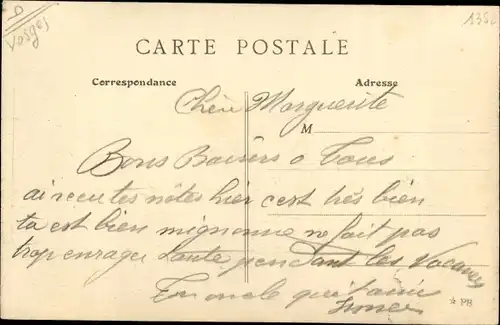 D
Vosges
CARTE POSTALE
Correspondance
Adresse
Chère Marguerite
M
Bons Baisers a Tous
ai recu tes notes hier c'est très bien
ta est bien mignonne ne fait pas
trop enrager tante pendant les Vacances
Ton oncle qui t'aime
☆ PB